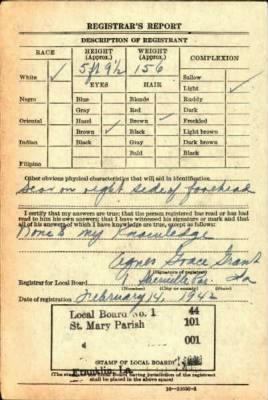 REGISTRAR'S REPORT
DESCRIPTION OF REGISTRANT
RACE HEIGHT (Approx.) WEIGHT (Approx.) COMPLEXION
White ✓ 5 ft 9½ 156 Sallow
EYES HAIR Light ✓
Negro Blue Blonde Ruddy
Gray Red Dark
Oriental Hazel Brown ✓ Freckled
Brown ✓ Black Light brown
Indian Black Gray Dark brown
Bald Black
Filipino
Other obvious physical characteristics that will aid in identification
Scar on right side of forehead
I certify that my answers are true; that the person registered has read or has had
read to him his own answers; that I have witnessed his signature or mark and that
all of his answers of which I have knowledge are true, except as follows:
my Knowledge
Agnes Grace Grant
(Signature of registrar)
Registrar for Local Board La
(Number) (City or county) (State)
Date of registration February 14, 1942
Local Board No. 1 44
St. Mary Parish 101
001
(STAMP OF LOCAL BOARD)
Franklin, La.
(The stamp of the Local Board having jurisdiction of the registrant
shall be placed in the above space.)